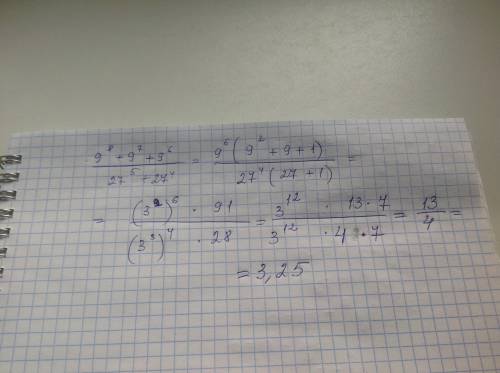 (9^8 + 9^7 + 9^6)/(27^5 + 27^4) = (9^6(9^2 + 9 + 1))/(27^4(27 + 1)) =
= ((3^2)^6 · 91)/((3^3)^4 · 28) = (3^12 · 13 · 7)/(3^12 · 4 · 7) = 13/4 =
= 3,25